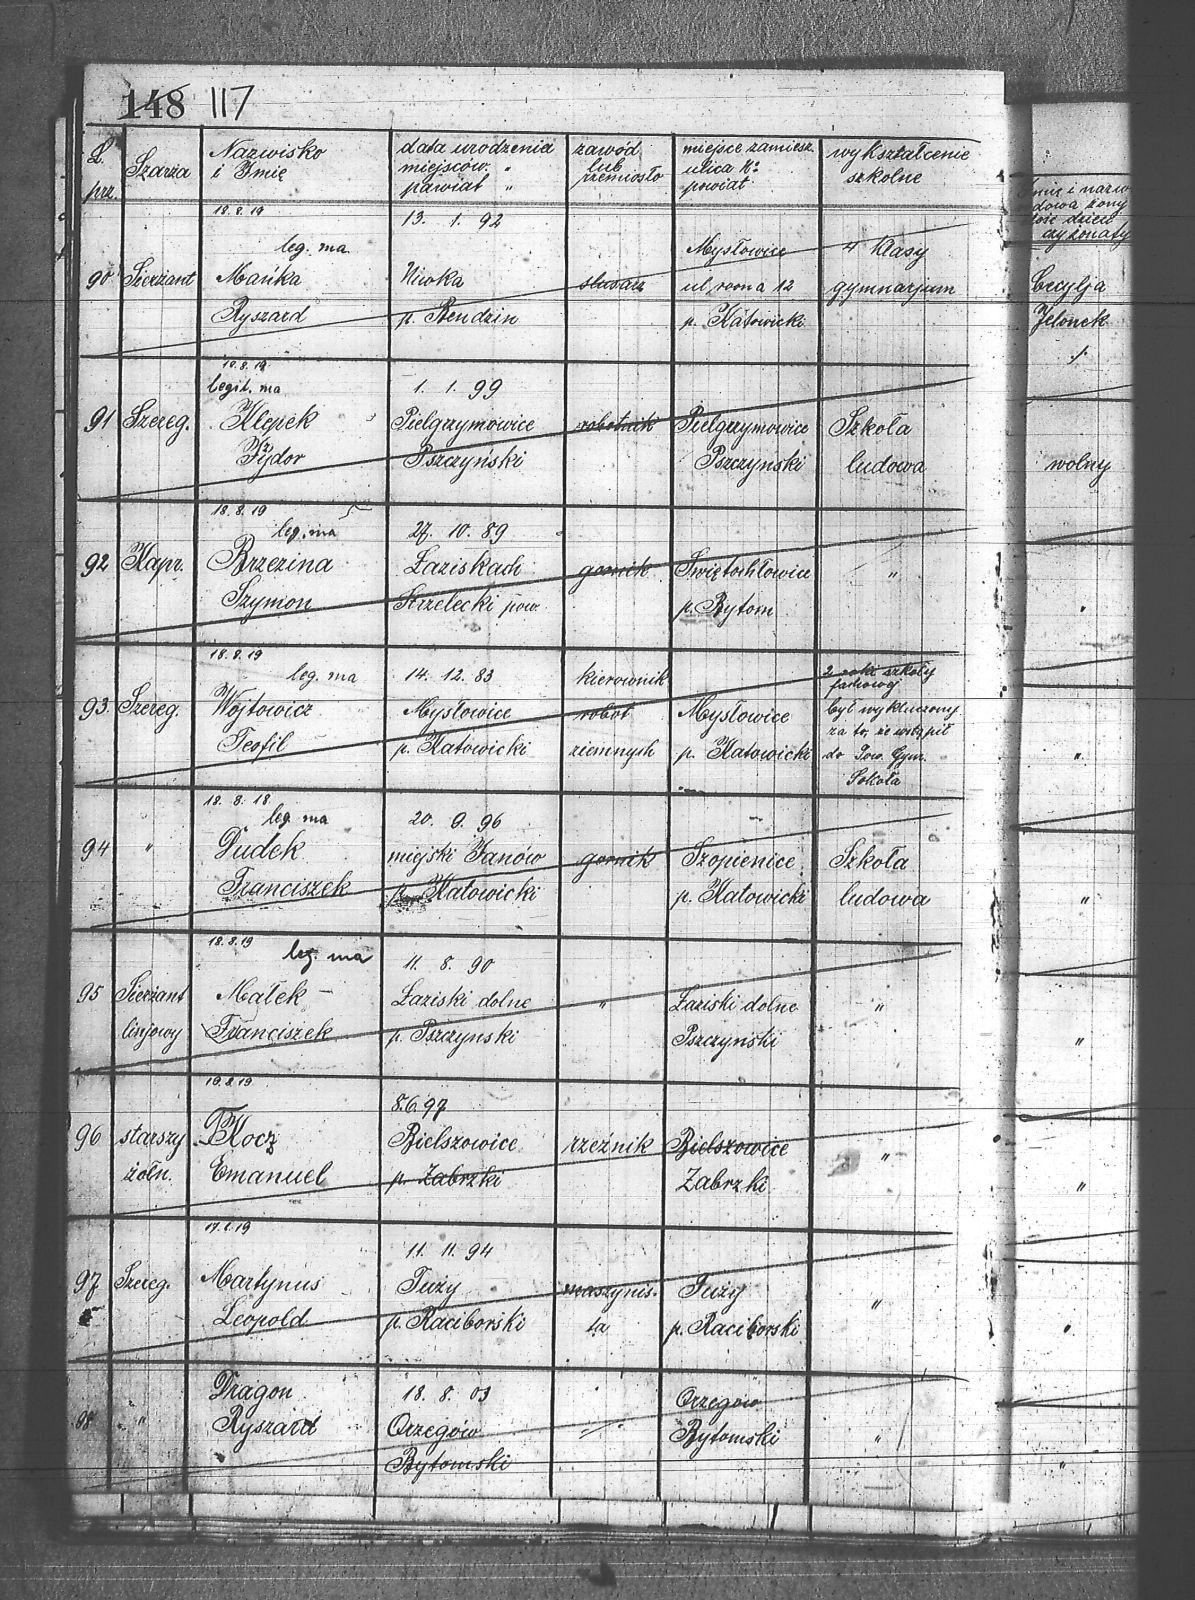 148 117
L. prz.
Szarża
Nazwisko
i Imię
data urodzenia
miejsców. "
powiat "
zawód
lub
rzemiosło
miejsce zamiesz.
ulica №
powiat
wykształcenie
szkolne
Imię i nazw
dowa żony
ilość dzieci
czy żonaty
18.8.19
leg. ma
90 Sierżant
Mańka
Ryszard
13. 1. 92
Niwka
p. Bendzin
slusarz
Mysłowice
12
p. Katowicki
4 klasy
gymnazjum
Cecylja
Jelonek
./.
18.8.19
legit. ma
91 Szereg.
Klepek
Fydor
1. 1. 99
Pielgrzymowice
Pszczyński
robotnik
Pielgrzymowice
Pszczyński
Szkoła
ludowa
wolny
18.8.19
leg. ma
92 Kapr.
Brzezina
Szymon
27. 10. 89
Łaziskach
Strzelecki pow.
gornik
Świętochłowice
p. Bytom
"
"
18.8.19
leg. ma
93. Szereg.
Wójtowicz
Teofil
14. 12. 83
Mysłowice
p. Katowicki
kierownik
robot
ziemnych
Mysłowice
p. Katowicki
2 roki szkoły
fachowej
był wykluczony
za to, że wstąpił
do Tow. Gym.
Sokoła
"
18. 8. 18
leg. ma
94 "
Dudek
Franciszek
20. 9. 96
miejski Janów
p. Katowicki
gornik
Szopienice
p. Katowicki
Szkoła
ludowa
"
18.8.19
leg. ma
95 Sierżant
linjowy
Małek
Franciszek
11. 8. 90
Łaziski dolne
p. Pszczynski
"
Łaziski dolne
Pszczyński
"
"
19.8.19
96 starszy
żołn.
Kocz
Emanuel
8.6.97
Bielszowice
p. Zabrzki
rzeźnik
Bielszowice
Zabrzki
"
"
97 Szereg.
Martynus
Leopold
11. 11. 94
Tuży
p. Raciborski
maszynis.
ta
Tuży
p. Raciborski
"
"
98 "
Dragon
Ryszard
18. 8. 03
Orzegów
Bytomski
Orzegów
Bytomski
"
"